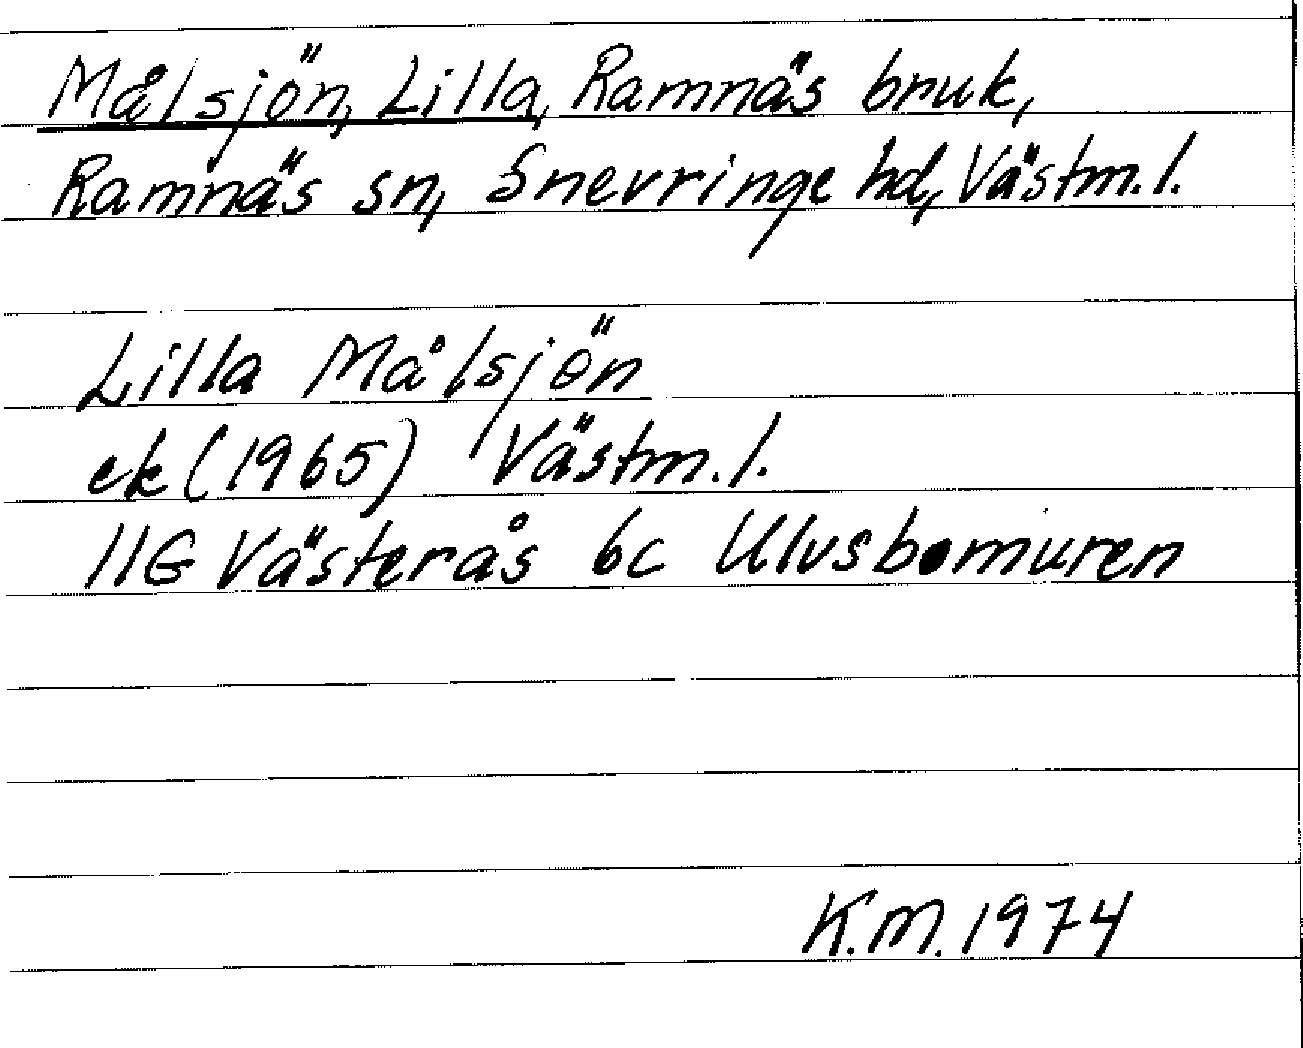 Målsjön, Lilla, Ramnäs bruk,
Ramnäs sn, Snevringe hd, Västm. l.
Lilla Målsjön
ek (1965) Västm. l.
11G Västerås 6c Ulvsbomuren
K.M. 1974